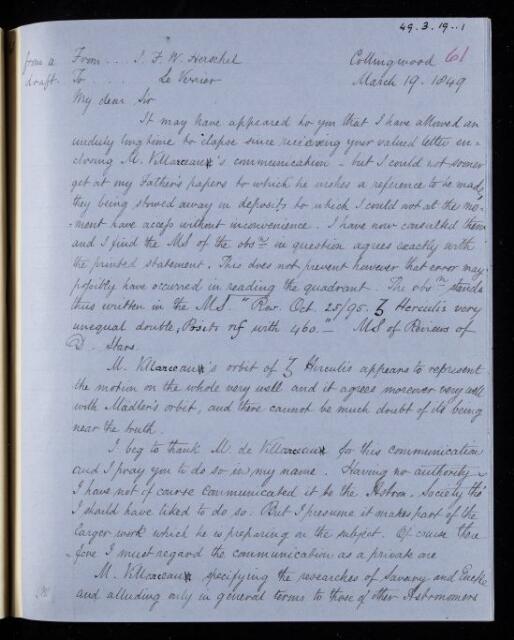 49.3.19..1
from a draft.
From ... J. F. W. Herschel Collingwood 61
To .... Le Verrier March 19. 1849
My dear Sir
It may have appeared to you that I have allowed an
unduly long time to elapse since receiving your valued letter en-
closing M. Villarceaux's communication - but I could not sooner
get at my Father's papers to which he wishes a reference to be made,
they being stowed away in deposits to which I could not at the mo-
ment have access without inconvenience. I have now consulted them
and I find the MS of the obsn in question agrees exactly with
the printed statement. This does not prevent however that error may
possibly have occurred in reading the quadrant. The obsn stands
thus written in the MS. "Rev. Oct. 25/95. ζ Herculis very
unequal double, Posits nf with 460." MS of Reviews of
D. Stars.
M. Villarceaux's orbit of ζ Herculis appears to represent
the motion on the whole very well and it agrees moreover very well
with Mädler's orbit, and there cannot be much doubt of its being
near the truth.
I beg to thank M. de Villarceaux for this communication
and I pray you to do so in my name. Having no authority
I have not of course communicated it to the Astron. Society tho'
I should have liked to do so. But I presume it makes part of the
larger work which he is preparing on the subject. Of course there
-fore I must regard the communication as a private one
M. Villarceaux specifying the researches of Savary and Encke
and alluding only in general terms to those of other Astronomers